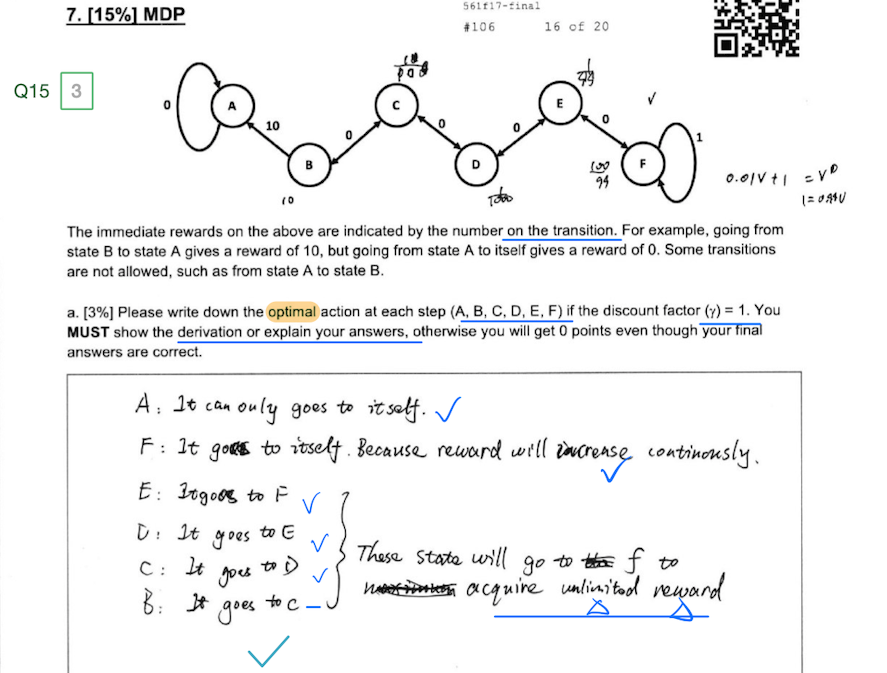 561f17-final
7. [15%] MDP
#106 16 of 20
Q15 3
0
A
10
B
10
0
C
0
D
0
E
0
100
99
F
1
0.01V+1 = V
1=0.99V
The immediate rewards on the above are indicated by the number on the transition. For example, going from
state B to state A gives a reward of 10, but going from state A to itself gives a reward of 0. Some transitions
are not allowed, such as from state A to state B.
a. [3%] Please write down the optimal action at each step (A, B, C, D, E, F) if the discount factor (γ) = 1. You
MUST show the derivation or explain your answers, otherwise you will get 0 points even though your final
answers are correct.
A: It can only goes to itself.
F: It goes to itself. Because reward will increase continously.
E: It goes to F
D: It goes to E
C: It goes to D
B: It goes to C
These state will go to f to
acquire unlimited reward